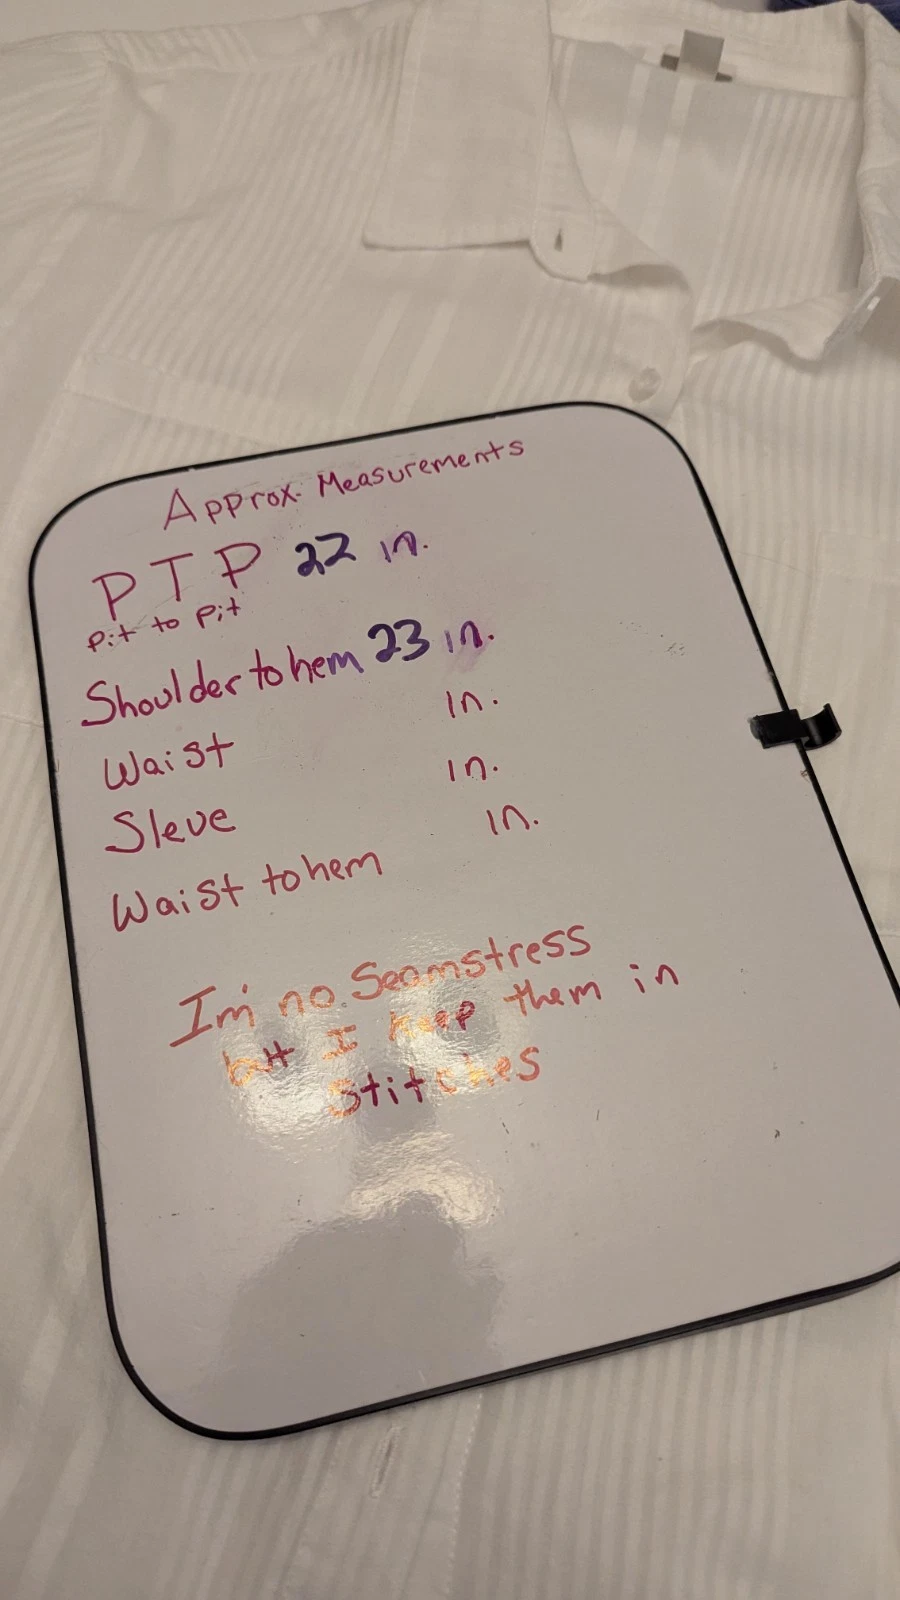 Approx. Measurements
PTP 22 in.
pit to pit
Shoulder to hem 23 in.
Waist in.
Sleve in.
Waist to hem in.
I'm no Seamstress
but I keep them in
stitches